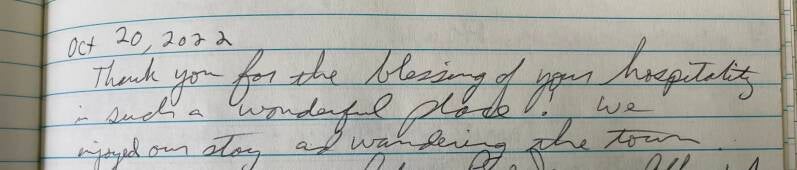 Oct 20, 2022
Thank you for the blessing of your hospitality
in such a wonderful place! We
enjoyed our stay and wandering the town.